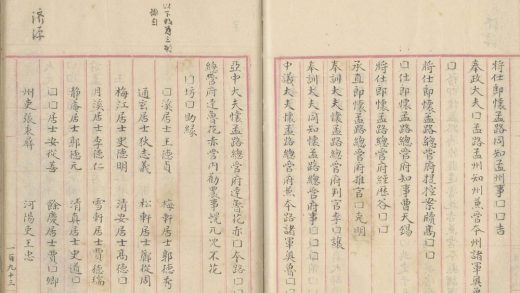 將仕郎懷孟路總管府知事同知孟州事口口吉
奉政大夫口孟路孟州知州兼管本州諸軍
將仕郎懷孟路總管府提控案牘高口口
口仕郎懷孟路總管府知事曹天錫
將仕郎懷孟路總管府經歷谷口口
承直郎懷孟路總管府推官口克明
奉訓大夫懷孟路總管府判官李口讓
奉訓大夫同知懷孟路總管府事口口口
中議大夫懷孟路總管府兼本路諸軍奧魯口口
亞中大夫懷孟路總管府達魯花赤口本路口口
總管府達魯花赤管內勸農事愧兀歹不花
口坊口助緣
口溪居士王德貞　梅軒居士郭德秀
通玄居士狄志義　松軒居士鄭從周
梅江居士史德明　清安居士高德口
月溪居士李德仁　雲軒居士賈德瑞
靜齋居士郭德元　清真居士史道口
口口居士安從善　餘慶居士賈口卿
州吏張秉彝　河陽吏王忠
以下
濟源
一百九十三